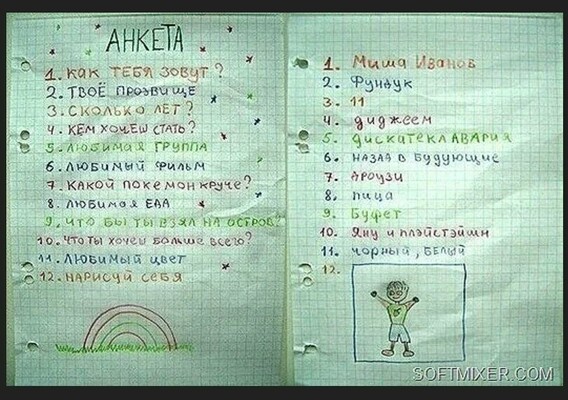 АНКЕТА
1. КАК ТЕБЯ ЗОВУТ?
2. ТВОЁ ПРОЗВИЩЕ
3. СКОЛЬКО ЛЕТ?
4. КЕМ ХОЧЕШ СТАТЬ?
5. ЛЮБИМАЯ ГРУППА
6. ЛЮБИМЫЙ ФИЛЬМ
7. КАКОЙ ПОКЕМОН КРУЧЕ?
8. ЛЮБИМАЯ ЕДА
9. ЧТО БЫ ТЫ ВЗЯЛ НА ОСТРОВ?
10. ЧТО ТЫ ХОЧЕШ БОЛЬШЕ ВСЕГО?
11. ЛЮБИМЫЙ ЦВЕТ
12. НАРИСУЙ СЕБЯ
1. Миша Иванов
2. Фундук
3. 11
4. диджеем
5. ДИСКАТЕКЛАВАРИЯ
6. НАЗАД В БУДУЮЩИЕ
7. ДРОУЗИ
8. пица
9. Буфет
10. Яну и плэйстэйшн
11. чорный, БЕЛЫЙ
12.
SOFTMIXER.COM